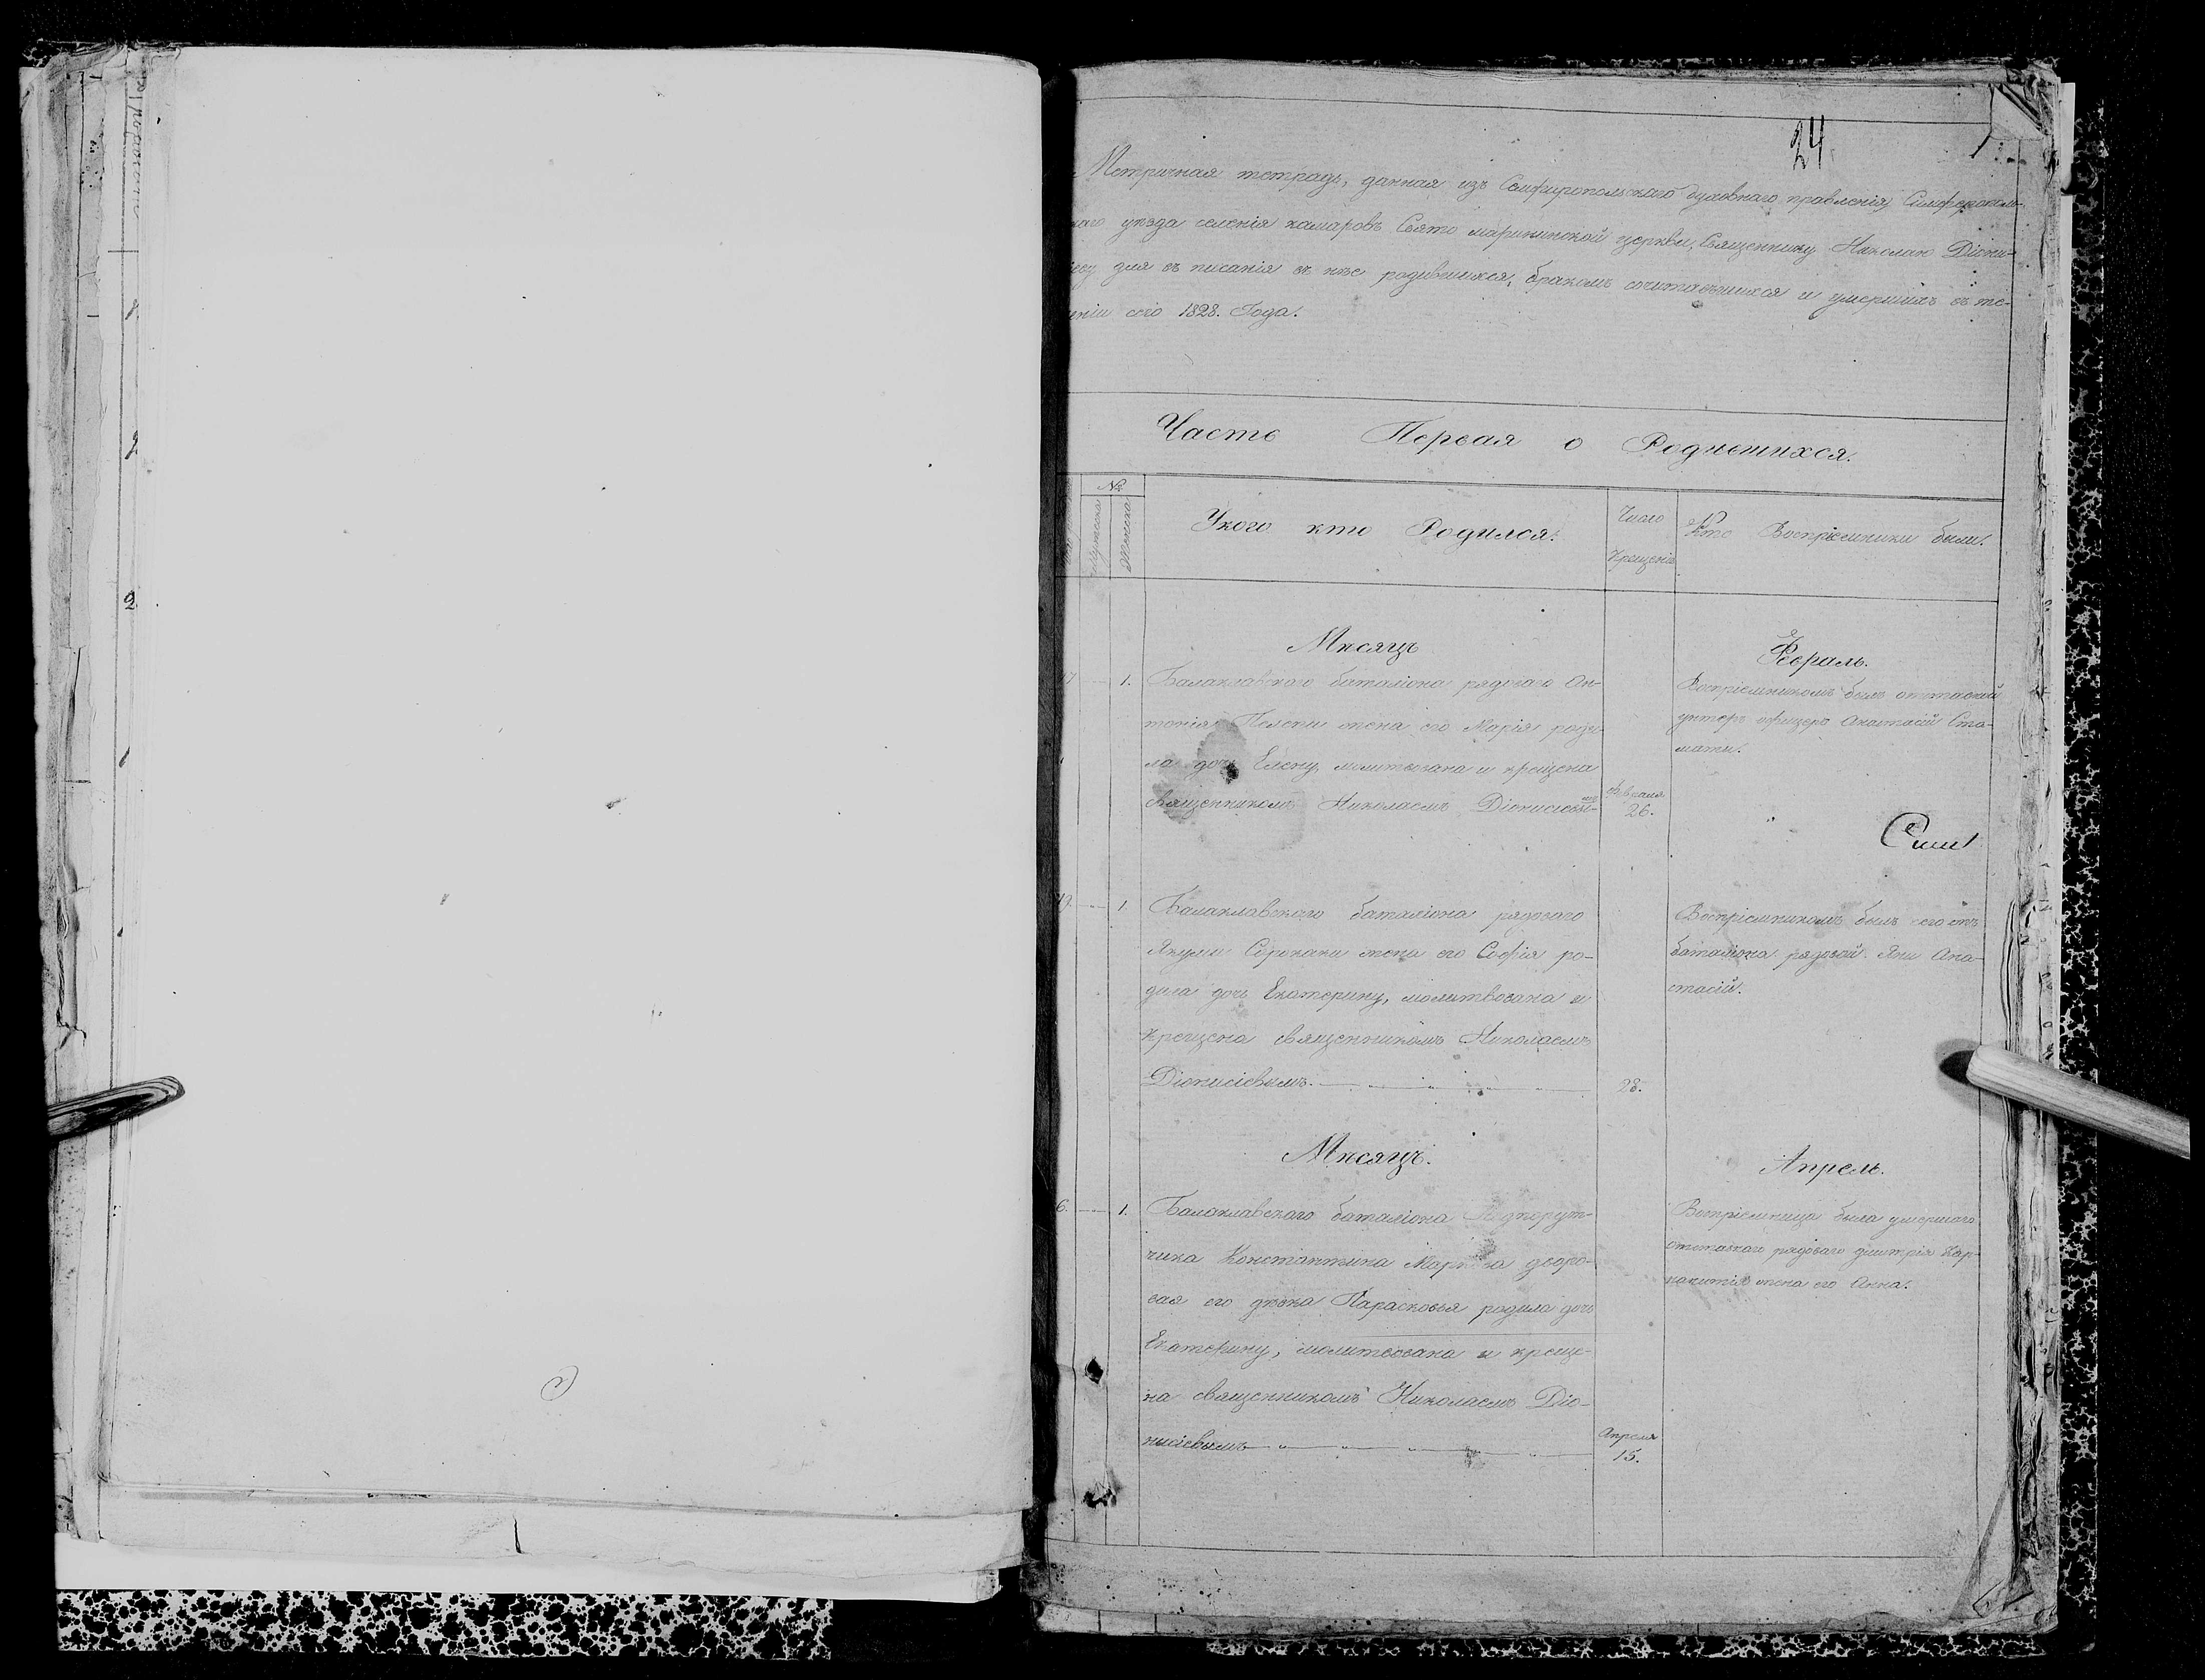 24
Метричная тетрадь, данная изъ Симфиропольскаго духовнаго правленія, Симферополь-
скаго уѣзда селенія камаровъ Свято марининской церкви, Священнику Николаю Діони-
сіеву для въ писанія въ нѣе родившихся, бракомъ сочитавшихся и умершихъ въ те-
ченіи сего 1828. Года.
Часть Первая о Родившихся.
№
Мужеска
Женска
Укого кто Родился.
Число
Крещенія
Кто Воспріемники были.
Мѣсяцъ
Февраль.
17 1. Балаклавскаго баталіона рядоваго Ан-
тонія жена его Марія роди-
ла дочь Елену, молитвована и крещена
священникомъ Николаемъ Діонисіевы-
мъ
Февраля
26.
Воспріемникомъ былъ отставной
унтеръ офицеръ Анастасій Ста-
мати.
19. 1 Балаклавскаго баталіона рядоваго
Якуми Сороконы жена его Софія ро-
дила дочь Екатерину, молитвована и
крещена священникомъ Николаемъ
Діонисіевымъ.
28.
Воспріемникомъ былъ сего жъ
баталіона рядовой Яни Ана-
стасій.
Мѣсяцъ.
Апрель.
6. 1. Балаклавскаго баталіона Подпорут-
чика Константина дворо-
вая его дѣвка Парасковья родила дочь
Екатерину, молитвована и креще-
на священникомъ Николаемъ Діо-
нисіевымъ
Апреля
15.
Воспріемница была умершаго
отставнаго рядоваго Дмитрія
жена его Анна.